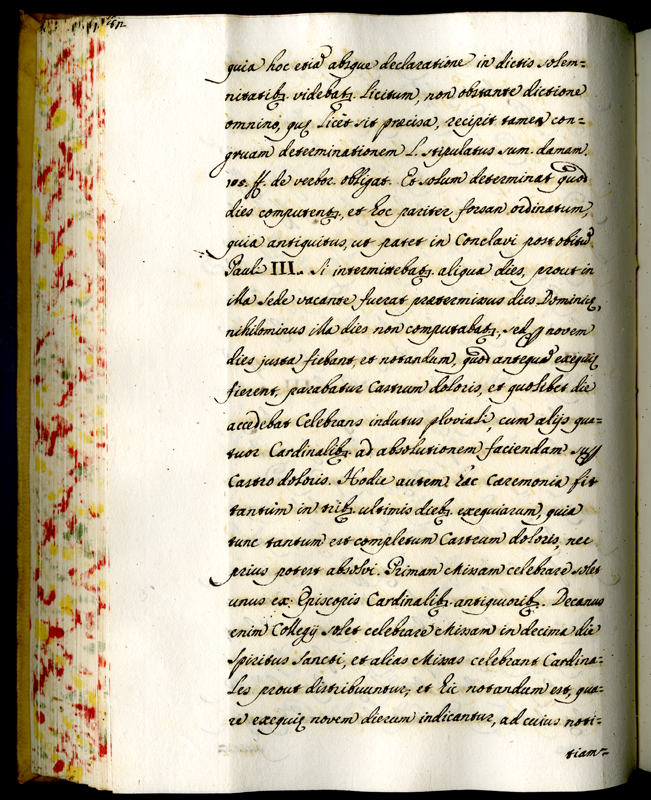 quia hoc etiã absque declaratione in dictis solem=
nitatibꝫ. videbatꝫ. licitum, non obstante dictione
omnino, quę licèt sit præcisa, recipit tamen con=
gruam determinationem L. stipulatus sum. damam.
108. ff. de verbor. obligat. Et solum determinat quod
dies computentꝫ., et hoc pariter forsan ordinatum,
quia antiquitus, ut patet in Conclavi post obitũ
Pauli III. si intermittebatꝫ. aliqua dies, prout in
illa Sede vacante fuerat prætermissus dies Dominicę,
nihilominus illa dies non computabatꝫ., sed novem
dies justa fiebant, et notandum, quod antequã exequię
fierent, parabatur Castrum doloris, et quolibet die
accedebat Celebrans indutus pluviali, cum alijs qua=
tuor Cardinalibꝫ. ad absolutionem faciendam
Castro doloris. Hodie autem hæc Cæremonia fit
tantùm in tribꝫ. ultimis diebꝫ. exequiarum, quia
tunc tantum est completum Castrum doloris, nec
prius potest absolvi. Primam Missam celebrare solet
unus ex: Episcopis Cardinalibꝫ. antiquioribꝫ. Decanus
enim Collegij solet celebrare Missam in decima die
Spiritus Sancti, et alias Missas celebrant Cardina=
les prout distribuuntur, et hic notandum est, qua=
re exequię novem dierum indicantur, ad cuius noti=
tiam=